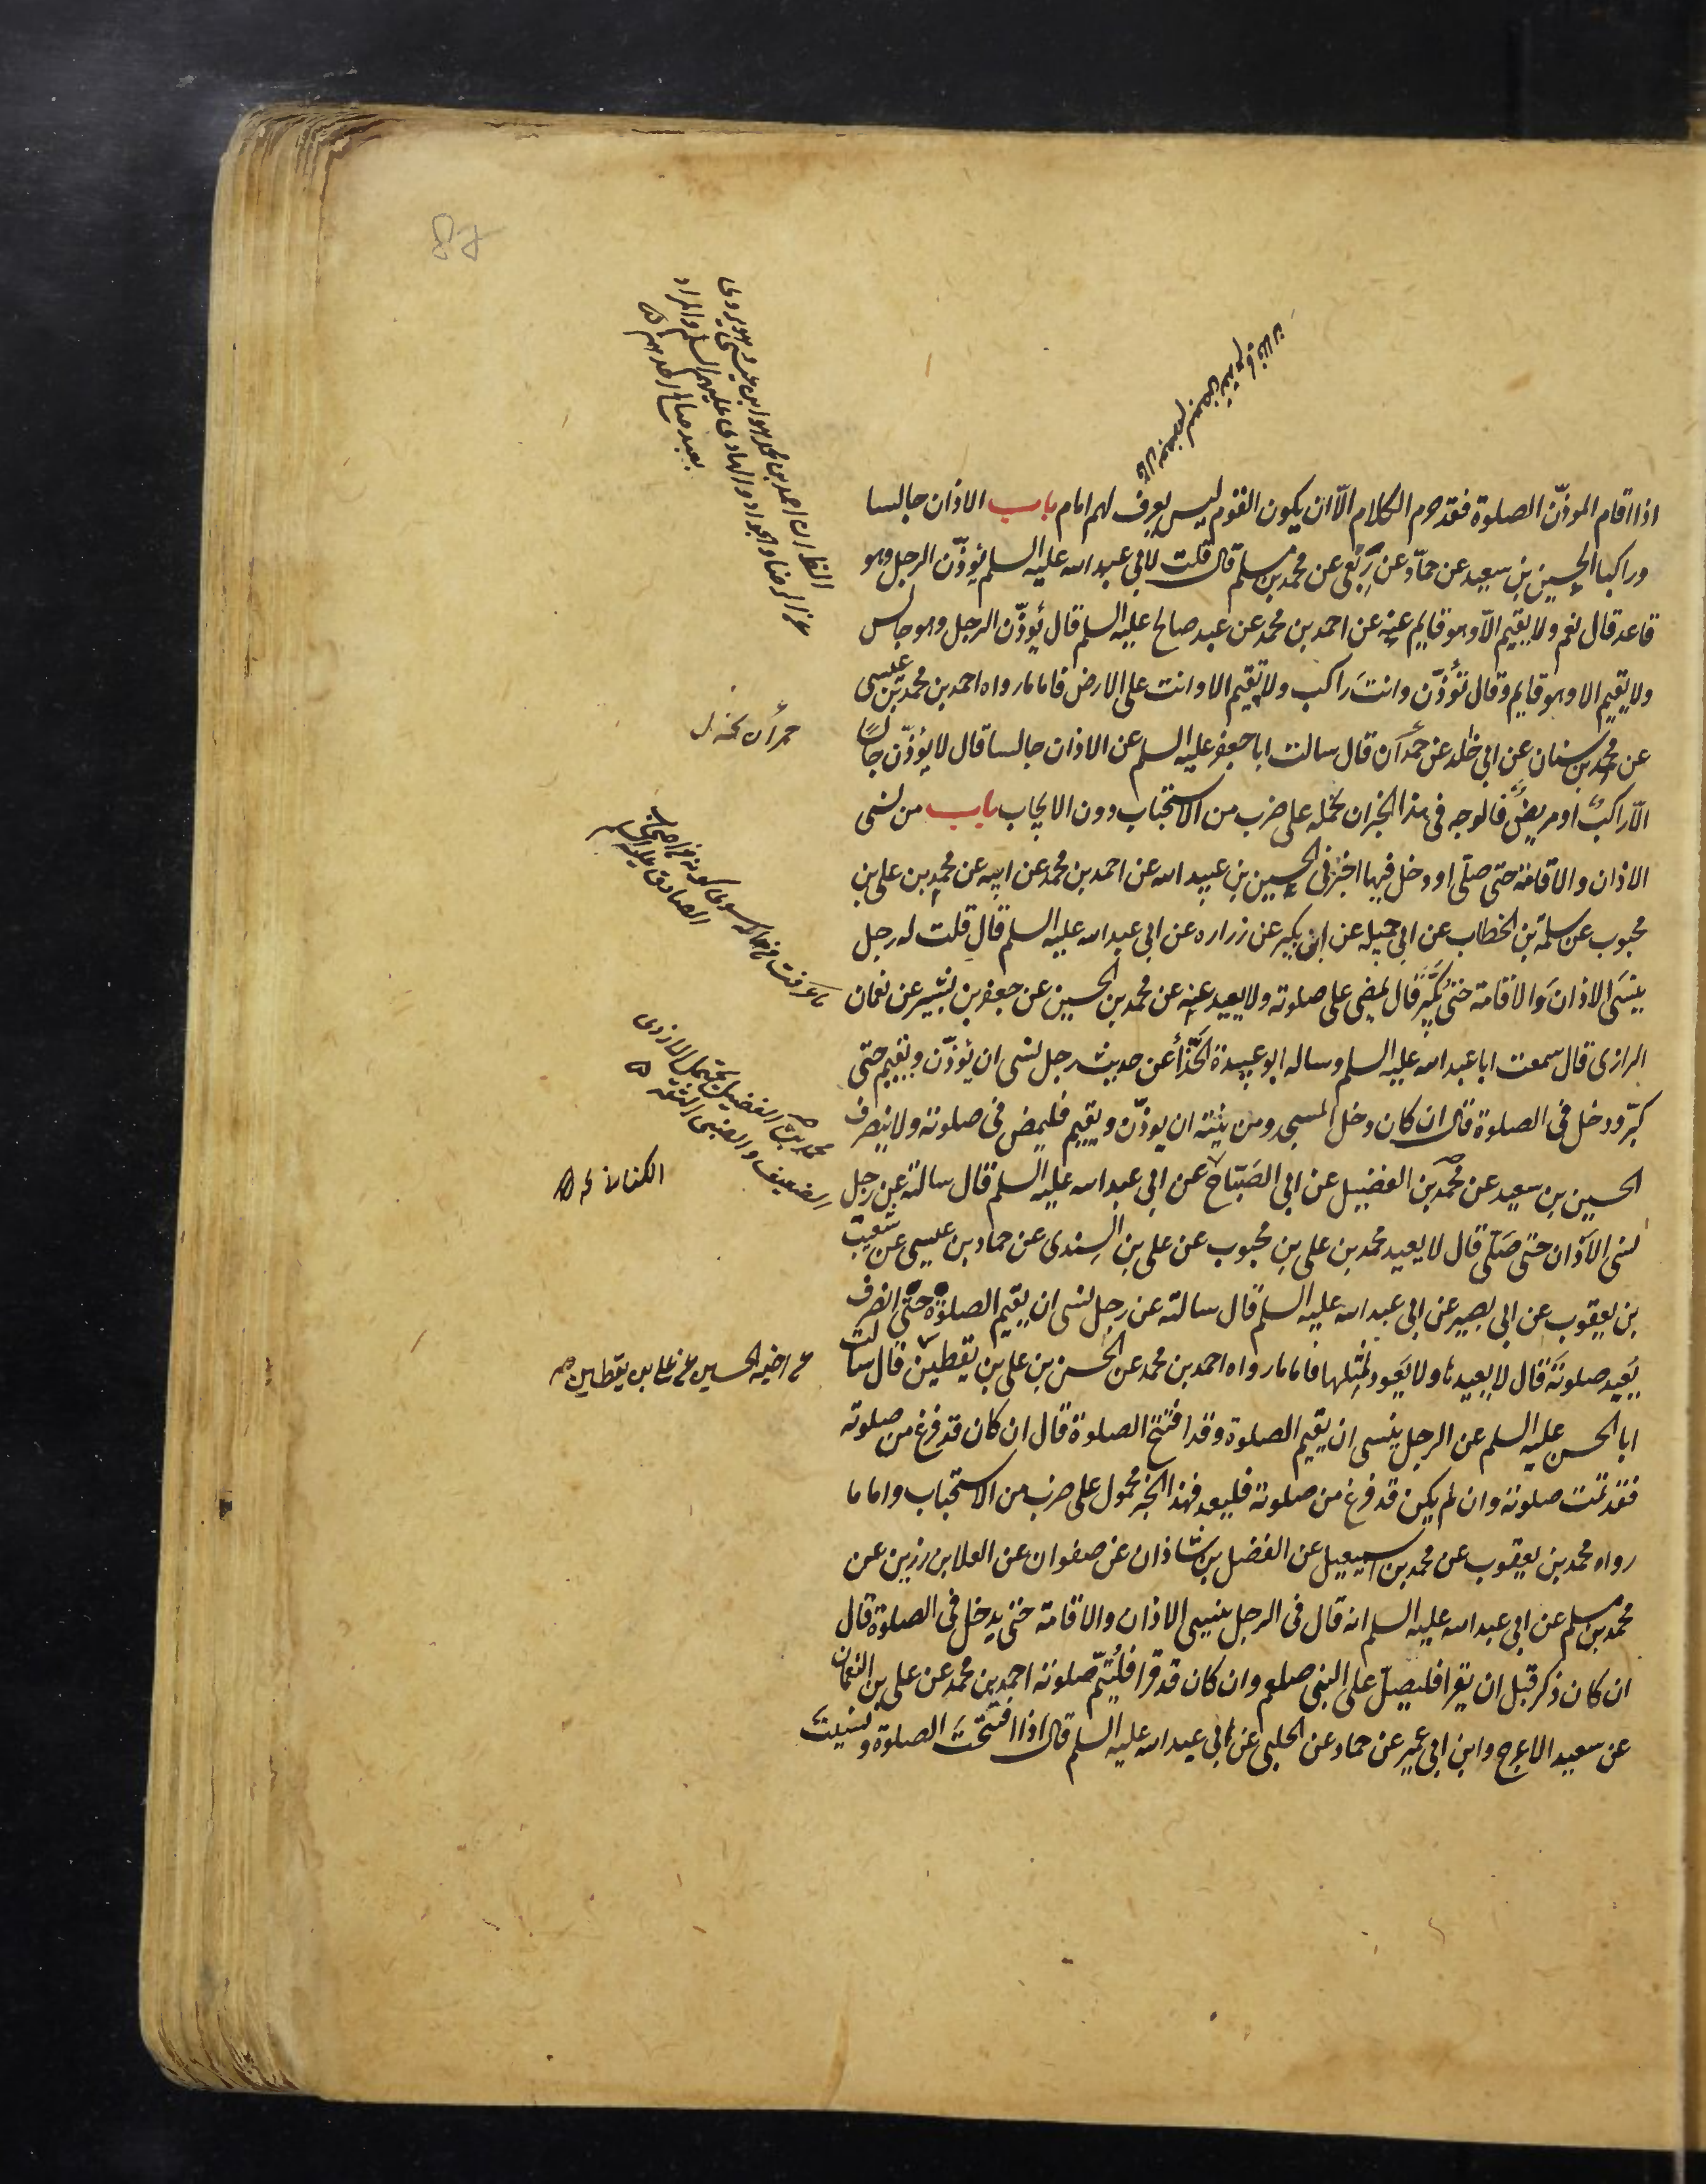 اذا اقام الموذّن الصلوة فقد حرم الكلام الّا ان يكون القوم ليس يعرف لهم امام باب الاذان جالسا
وراكبا الحسين بن سعيد عن حمّاد عن ربعى عن محمد بن مسلم قال قلت لابى عبد الله عليه السلم يُؤذّن الرجل وهو
قاعد قال نعم ولا يقيم الّا وهو قايم عنه عن احمد بن محمد عن عبد صالح عليه السلم قال يُؤذّن الرجل وهو جالس
ولا يقيم الا وهو قايم وقال تُؤذّن وانتَ راكب ولا تقيم الا وانت على الارض فاما ما رواه احمد بن محمد بن عيسى
عن محمد بن سنان عن ابى خلد عن حمران قال سالت ابا جعفر عليه السلم عن الاذان جالسا قال لا يؤذّن جالسًا
الّا راكبٌ او مريضٌ فالوجه فى هذا الخبر ان نحمله على ضرب من الاستحباب دون الايجاب باب من نسى
الاذان والاقامة حتى صلّى او دخل فيها اخبرنى الحسين بن عبيد الله عن احمد بن محمد عن ابيه عن محمد بن على بن
محبوب عن سلمة بن الخطاب عن ابى جميله عن ابن بكير عن زراره عن ابى عبد الله عليه السلم قال قلت له رجل
ينسَى الاذان وَالاقامة حتى يُكبّر قال يمضى على صلوته ولا يعيد عنه عن محمد بن الحسين عن جعفر بن بشير عن نعمان
الرازى قال سمعت ابا عبد الله عليه السلم وساله ابو عبيدة الحذّاء عن حديث رجل نسى ان يُؤذّن ويقيم حتى
كبّر ودخل فى الصلوة قال ان كان دخل المسجد ومن نيته ان يوذّن ويقيم فليمض فى صلوته ولا ينصرف
الحسين بن سعيد عن محمد بن الفضيل عن ابى الصَبّاح عن ابى عبد الله عليه السلم قال سالته عن رجل
نسى الاَذان حتى صَلّى قال لا يعيد محمد بن على بن محبوب عن على بن السِندى عن حماد بن عيسى عن شعيب
بن يعقوب عن ابى بصير عن ابى عبد الله عليه السلم قال سالته عن رجل نسى ان يقيم الصلوة حتى انصرف
يُعيد صلوتَه قال لا يعيدها ولا يعَود لمِثلها فاما ما رواه احمد بن محمد عن الحسن بن على بن يقطين قال سالت
ابا الحسن عليه السلم عن الرجل ينسى ان يقيم الصلوة وقد افتتح الصلوة قال ان كان قد فرغ من صلوته
فقد تمت صلوته وان لم يكن قد فرغ من صلوته فليعد فهذا الخبر محمول على ضرب من الاستحباب واما ما
رواه محمد بن يعقوب عن محمد بن اسمعيل عن الفضل بن شاذان عن صفوان عن العلا بن رزين عن
محمد بن مسلم عن ابى عبد الله عليه السلم انه قال فى الرجل ينسى الاذان والاقامة حتى يدخل فى الصلوة قال
ان كان ذكر قبل ان يقرا فليصلّ على النبى صلعم وان كان قد قرا فليُتمّ صلوته احمد بن محمد عن على بن النعمان
عن سعيد الاعرج وابن ابى عمير عن حماد عن الحلبى عن ابى عبد الله عليه السلم قال اذا افتتحَتَ الصلوة ونسيت
ان احمد بن محمد هو ابن عيسى وهو يروى
عن الرضا والجواد والهادى عليهم السلم والمراد
بعبد صالح احدهم
حمران
الصادق عليه السلم
محمد بن الفضيل يحتمل الازدى
الضعيف والضبى الثقة
الكنانى
عن اخيه الحسين عن على بن يقطين